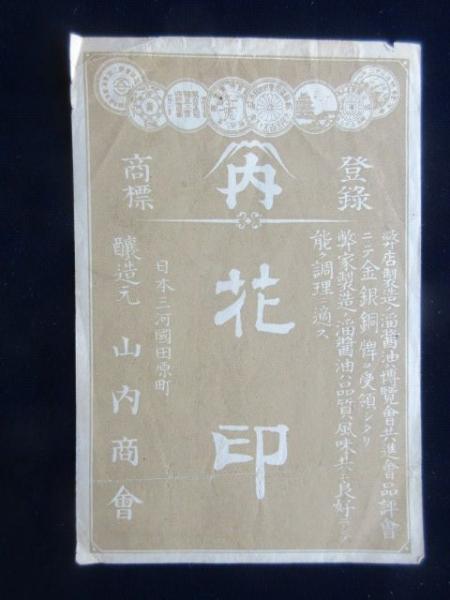 登錄
弊店製造之溜醬油ハ博覽會共進會品評會
ニテ金銀銅牌ヲ受領シタリ
弊家製造ノ溜醬油ハ品質風味共ニ良好ニシテ
能ク調理ニ適ス
內
花印
商標
日本三河國田原町
釀造元 山內商會